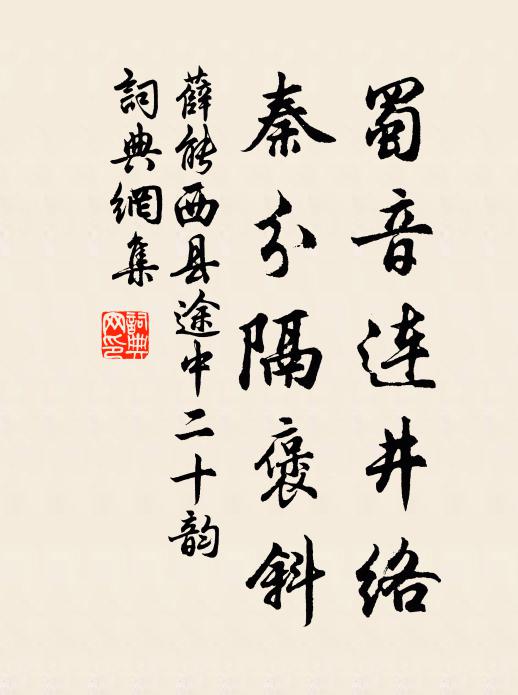 蜀音連井络
秦分隔褒斜
薛能西县途中二十韵
詞典網集
詞典網印